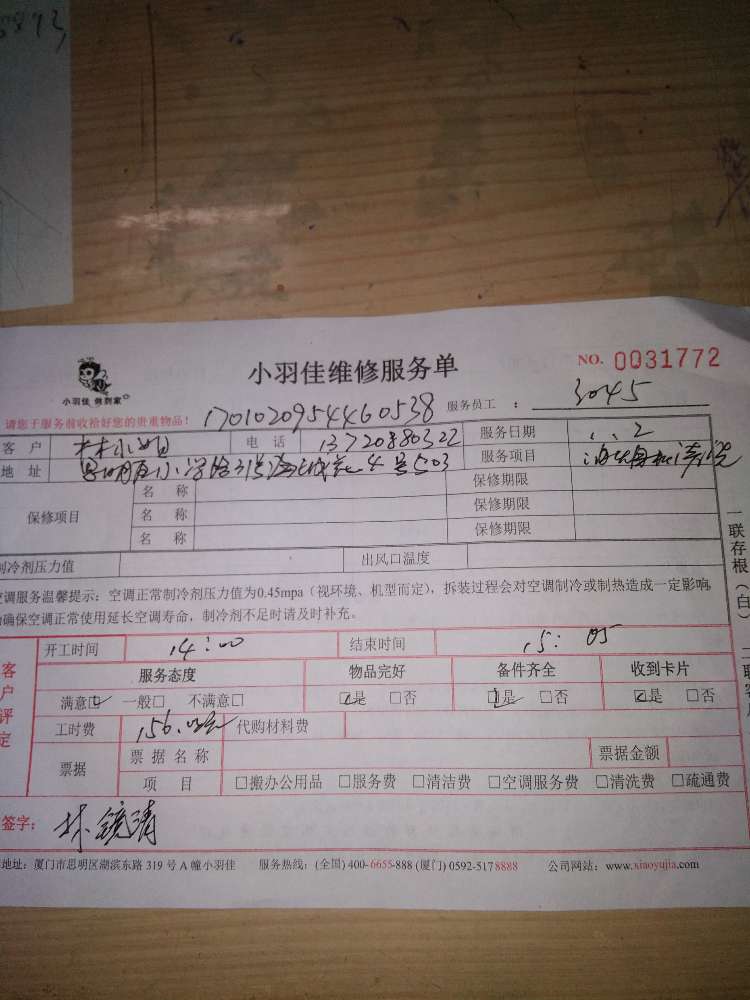 小羽佳 做到家
小羽佳维修服务单
NO. 0031772
请您于服务前收拾好您的贵重物品！
1701020954460538
服务员工 ： 3045
客 户 林小姐 电 话 13720880322 服务日期 1.2
地 址 思明 小学路 4号503 服务项目 清洗
保修项目 名 称 保修期限
名 称 保修期限
名 称 保修期限
制冷剂压力值 出风口温度
空调服务温馨提示：空调正常制冷剂压力值为0.45mpa（视环境、机型而定），拆装过程会对空调制冷或制热造成一定影响
确保空调正常使用延长空调寿命，制冷剂不足时请及时补充。
一联存根（白）
客户评定
开工时间 14：00 结束时间 15：05
服务态度 物品完好 备件齐全 收到卡片
满意☑ 一般□ 不满意□ ☑是 □否 ☑是 □否 ☑是 □否
工时费 156. 代购材料费
票据 票 据 名 称 票据金额
项 目 □搬办公用品 □服务费 □清洁费 □空调服务费 □清洗费 □疏通费
签字： 林镜清
地址：厦门市思明区湖滨东路 319 号 A 幢小羽佳 服务热线：(全国) 400-6655-888 (厦门) 0592-5178888 公司网站：www.xiaoyujia.com